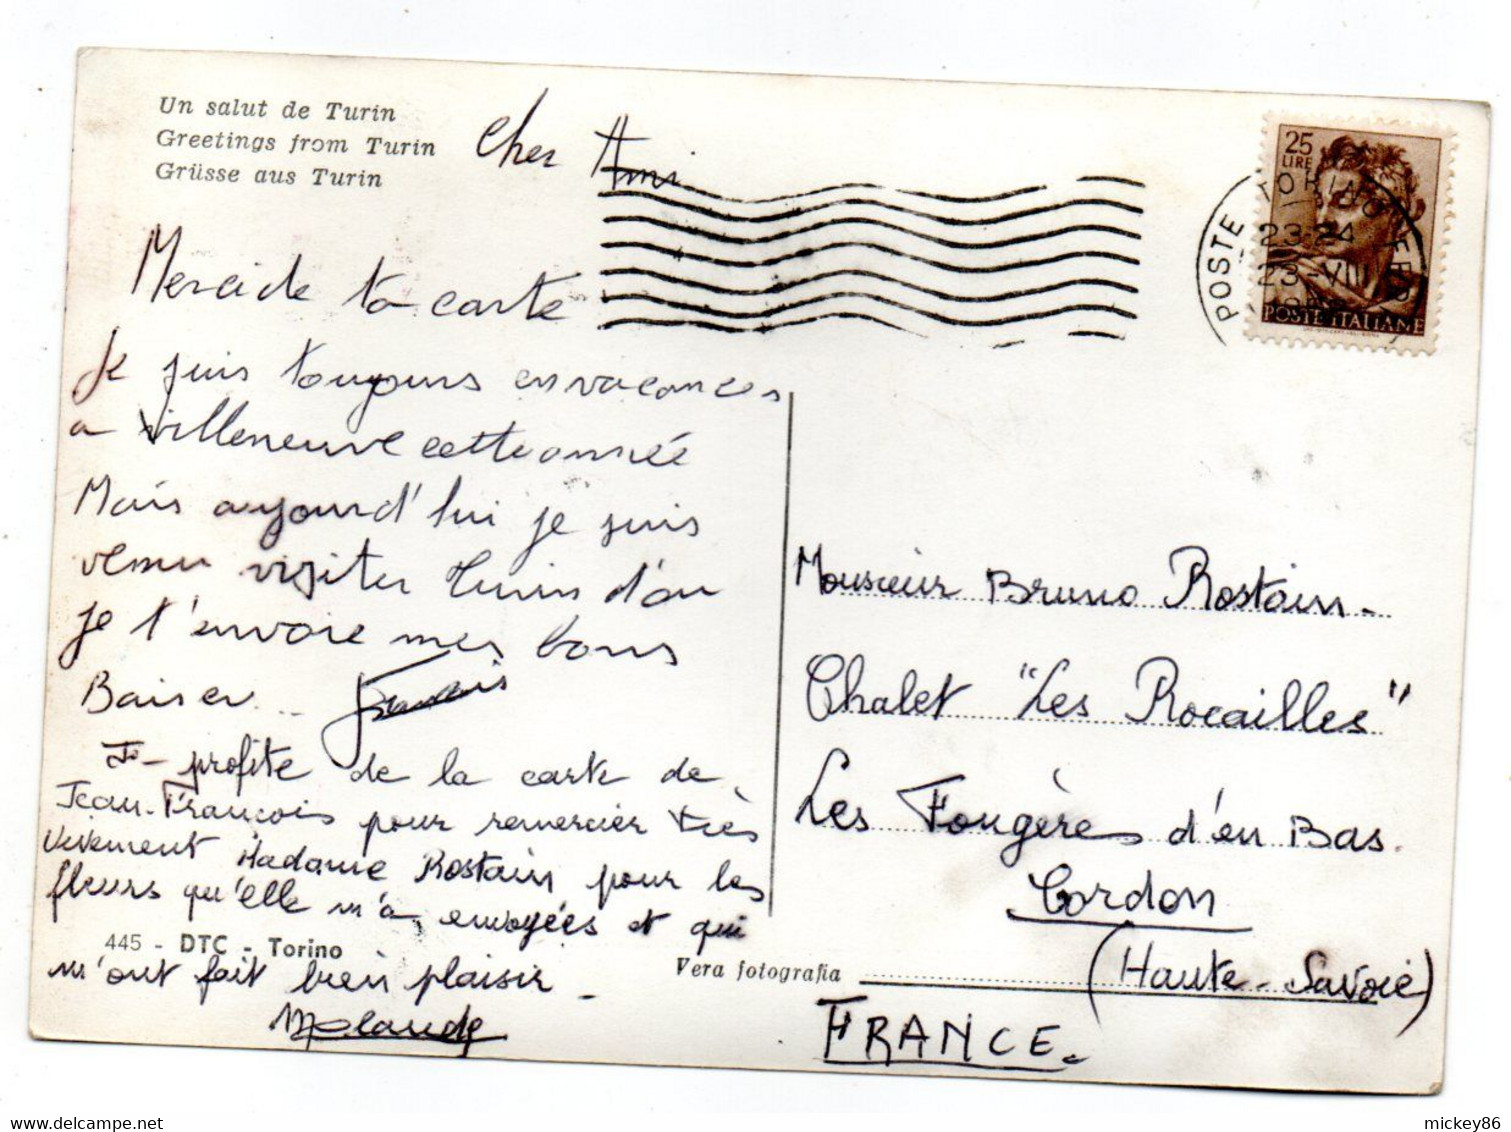 Un salut de Turin
Greetings from Turin
Grüsse aus Turin
Cher Ami
Merci de ta carte
Je suis toujours en vacances
a Villeneuve cette année
Mais aujourd'hui je suis
venu visiter Turin d'ou
je t'envoie mes bons
Baiser...
Je profite de la carte de
Jean-François pour remercier très
vivement Madame Rostain pour les
fleurs qu'elle m'a envoyées et qui
m'ont fait bien plaisir -
445 - DTC - Torino
Vera fotografia
25
LIRE
POSTE ITALIANE
POSTE TORINO
23-24
23-VIII
Monsieur Bruno Rostain -
Chalet "Les Rocailles"
Les Fougères d'en Bas.
Cordon
(Haute-Savoie)
FRANCE.
mickey86